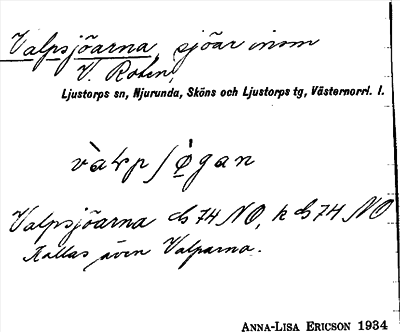 Valpsjöarna, sjöar inom
V. Roten,
Ljustorps sn, Njurunda, Sköns och Ljustorps tg, Västernorrl. l.
Valpsjöarna G 74 NO, k G 74 NO
Kallas även Valparna.
ANNA-LISA ERICSON 1934